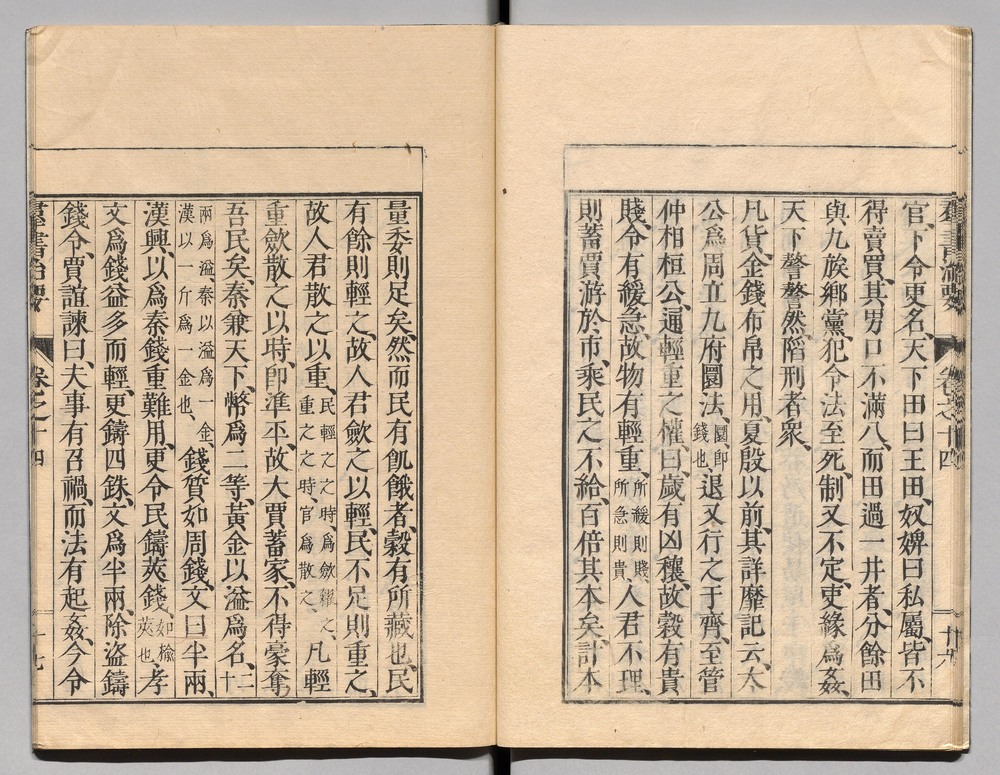 官、下令更名、天下田曰王田、奴婢曰私屬、皆不
得賣買、其男口不滿八、而田過一井者、分餘田
與九族鄉黨、犯令法至死、制又不定、吏緣爲姦、
天下謷謷然陷刑者衆、
凡貨、金錢布帛之用、夏殷以前、其詳靡記云、太
公爲周立九府圜法、圜卽錢也、退又行之于齊、至管
仲相桓公、通輕重之權、曰、歲有凶穰、故穀有貴
賤、令有緩急、故物有輕重、所緩則賤、所急則貴、人君不理、
則蓄賈游於市、乘民之不給、百倍其本矣、計本
量委則足矣、然而民有飢餓者、穀有所藏也、民
有餘則輕之、故人君斂之以輕、民不足則重之、
故人君散之以重、民輕之之時、爲斂糴之、重之之時、官爲散之、凡輕
重斂散之以時、卽準平、故大賈蓄家、不得豪奪
吾民矣、秦兼天下、幣爲二等、黃金以溢爲名、二十
兩爲溢、秦以溢爲一金、漢以一斤爲一金也、錢質如周錢、文曰半兩、
漢興、以爲秦錢重難用、更令民鑄莢錢、如榆莢也、孝
文爲錢益多而輕、更鑄四銖、文爲半兩、除盜鑄
錢令、賈誼諫曰、夫事有召禍、而法有起姦、今令
羣書治要
卷之十四
十七